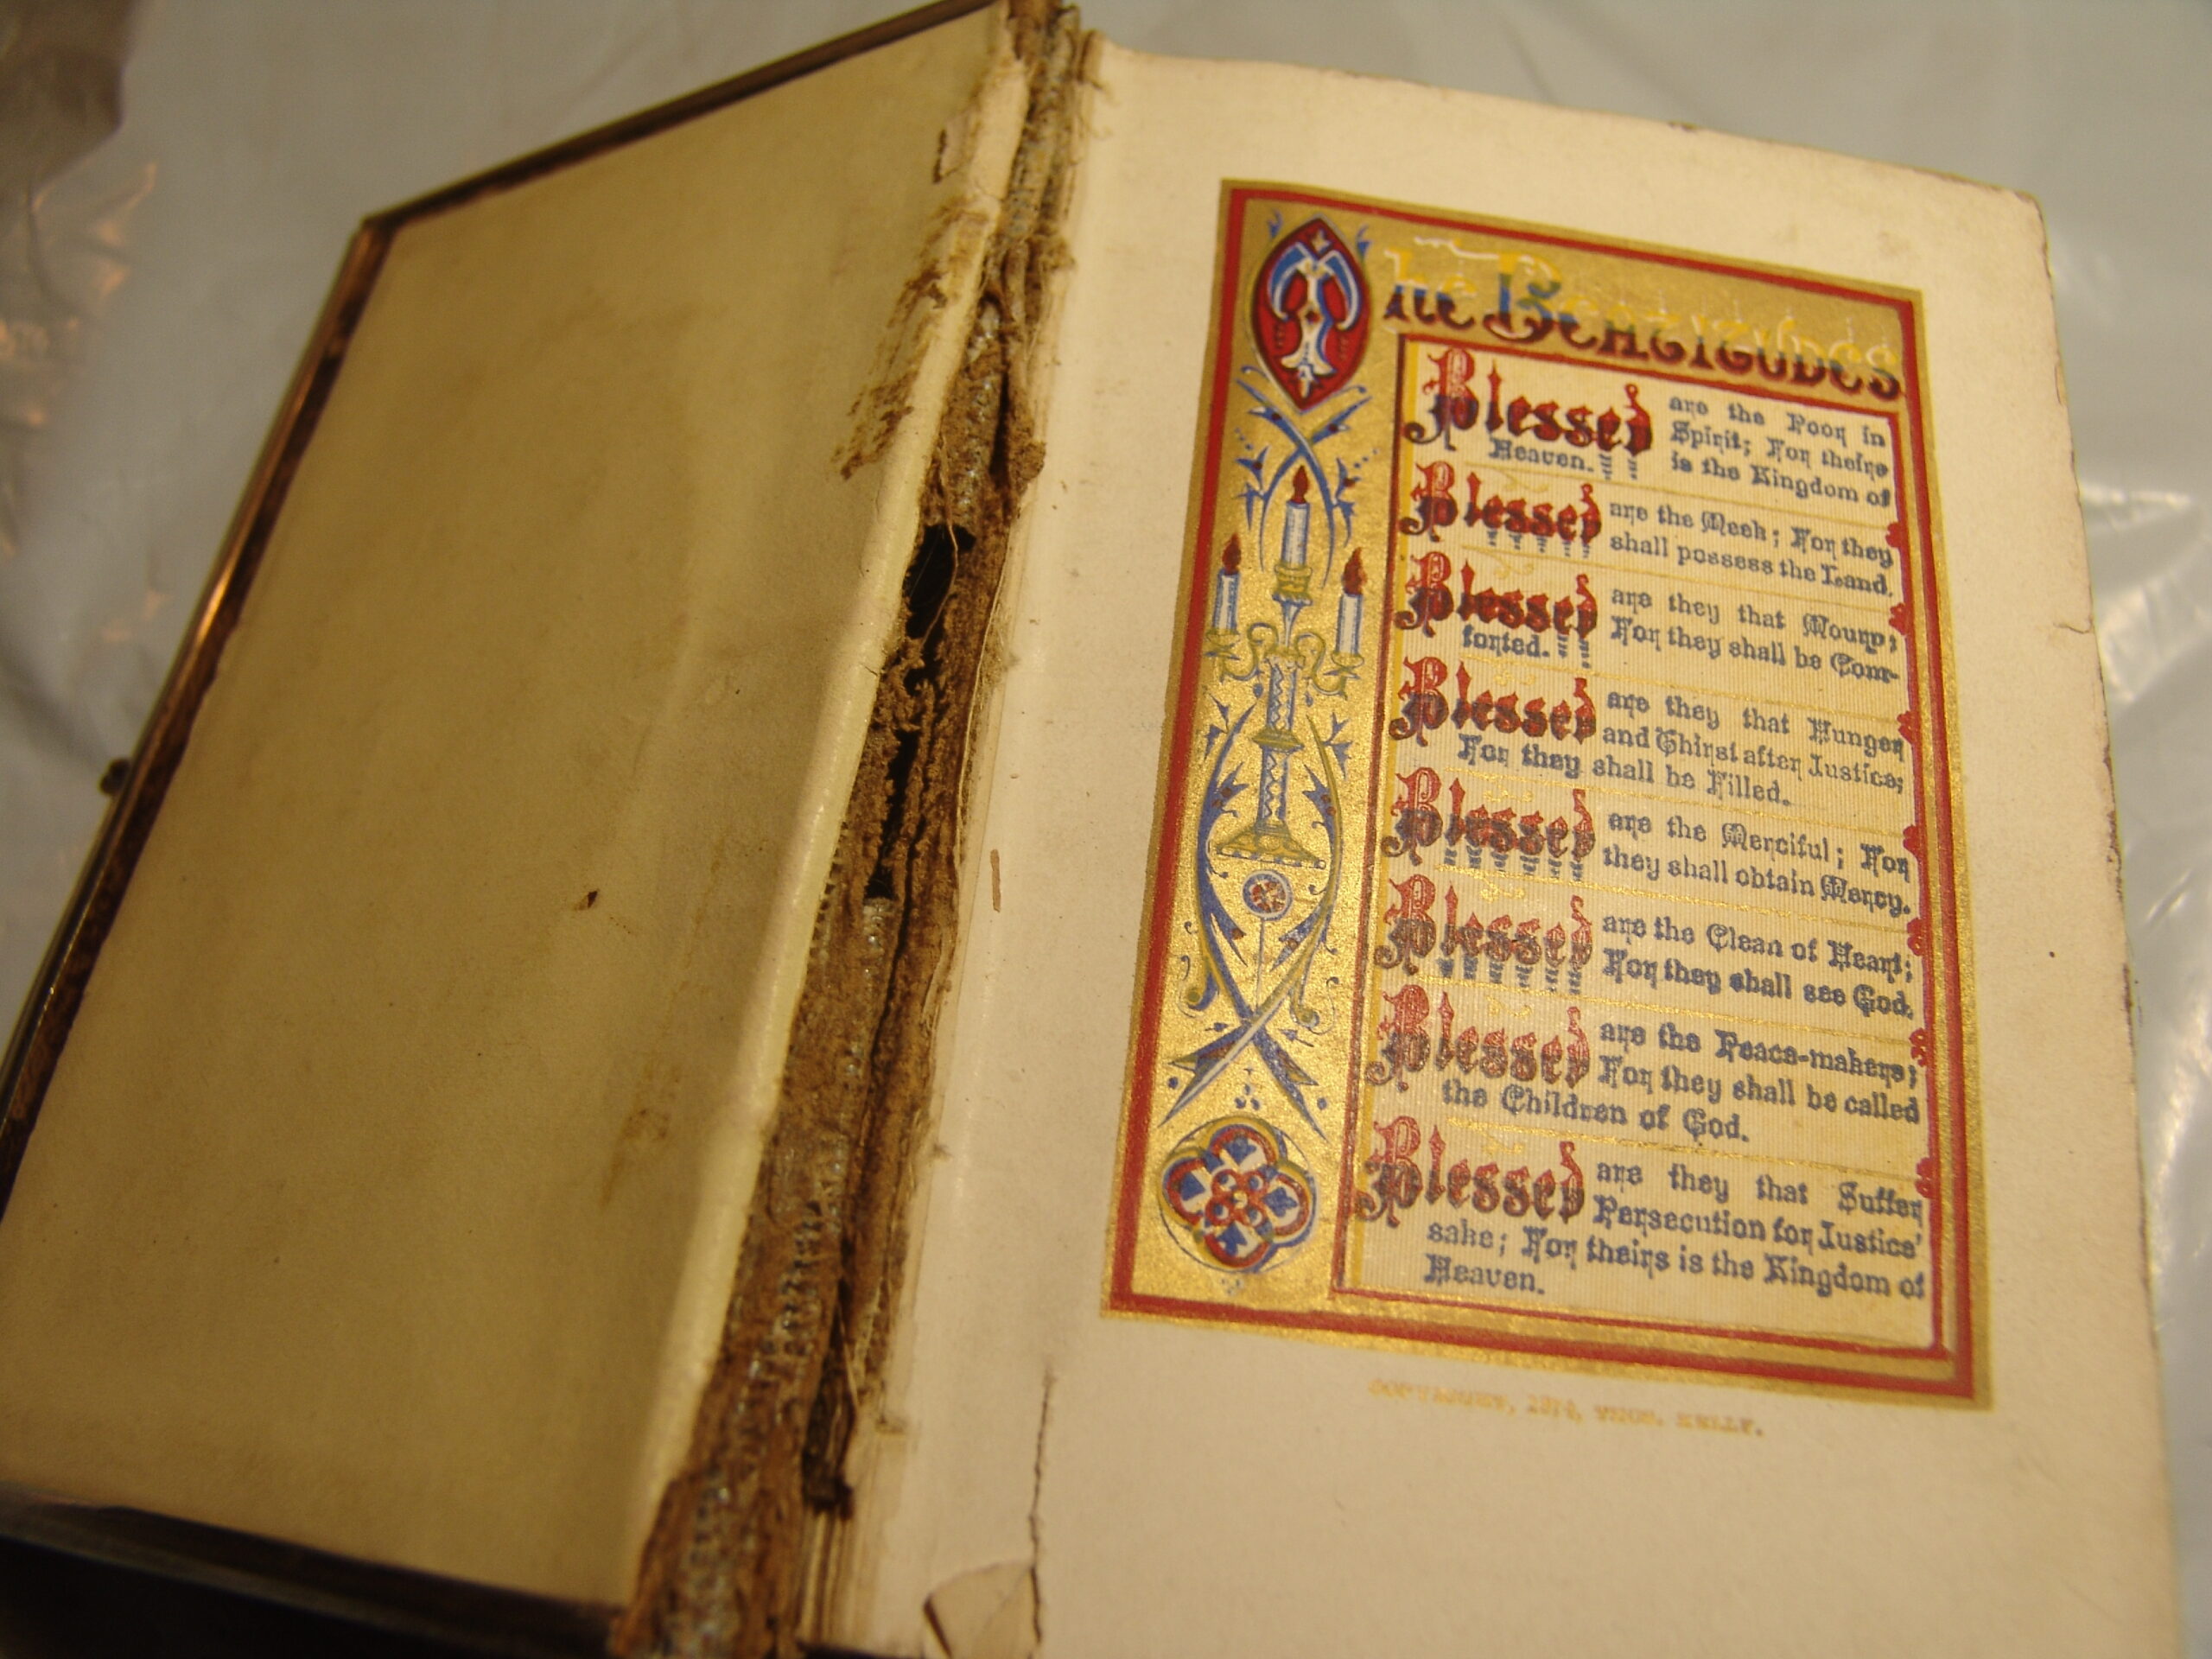 The Beatitudes
Blessed are the Poor in
Spirit; For theirs
is the Kingdom of
Heaven.
Blessed are the Meek; For they
shall possess the Land.
Blessed are they that Mourn;
For they shall be Com-
forted.
Blessed are they that Hunger
and Thirst after Justice;
For they shall be Filled.
Blessed are the Merciful; For
they shall obtain Mercy.
Blessed are the Clean of Heart;
For they shall see God.
Blessed are the Peace-makers;
For they shall be called
the Children of God.
Blessed are they that Suffer
Persecution for Justice'
sake; For theirs is the Kingdom of
Heaven.
COPYRIGHT, THOS. KELLY.